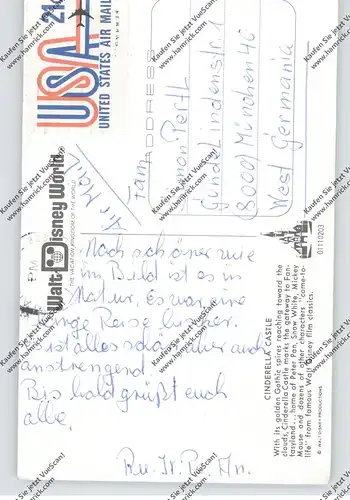 USA 21
UNITED STATES AIR MAIL
Air Mail
ADDRESS
Fam.
Simon Perth
Gundelindenstr. 1
8000 München 40
West Germania
Walt Disney World
THE VACATION KINGDOM OF THE WORLD
PM
Noch schöner wie
im Bild ist es in
Natur. Es war eine
lange Reise hierher.
Ist alles schön aber auch
anstrengend
Bis bald grüßt euch
alle.
0111-0203
CINDERELLA CASTLE
With its golden Gothic spires reaching toward the
clouds, Cinderella Castle marks the gateway to Fan-
tasyland... home of Peter Pan, Snow White, Mickey
Mouse and dozens of other characters "come-to-
life" from famous Walt Disney film classics.
© WALT DISNEY PRODUCTIONS
Kaufen Sie jetzt VueScan!
www.hamrick.com